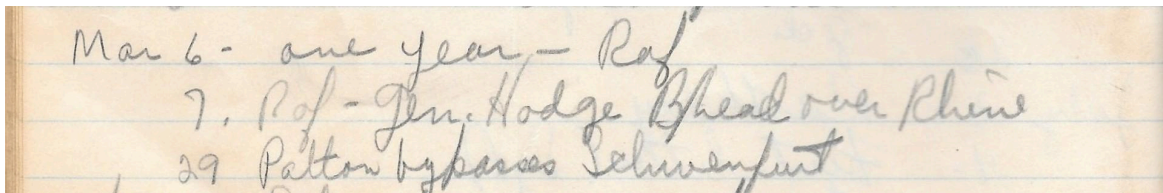 Mar 6 - one year - Rof
7. Rof - Gen. Hodge B/head over Rhine
29 Patton bypasses Schwenfurt